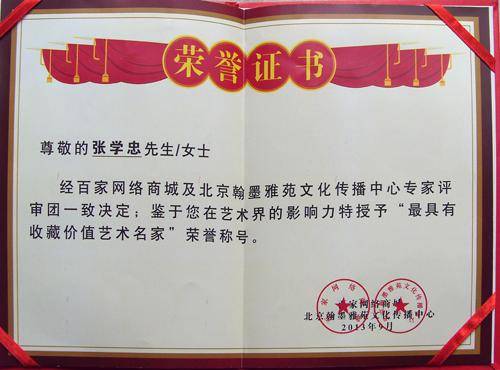 荣誉证书
尊敬的张学忠先生/女士
经百家网络商城及北京翰墨雅苑文化传播中心专家评
审团一致决定；鉴于您在艺术界的影响力特授予“最具有
收藏价值艺术名家”荣誉称号。
家网络商城
北京翰墨雅苑文化传播中心
2013年9月